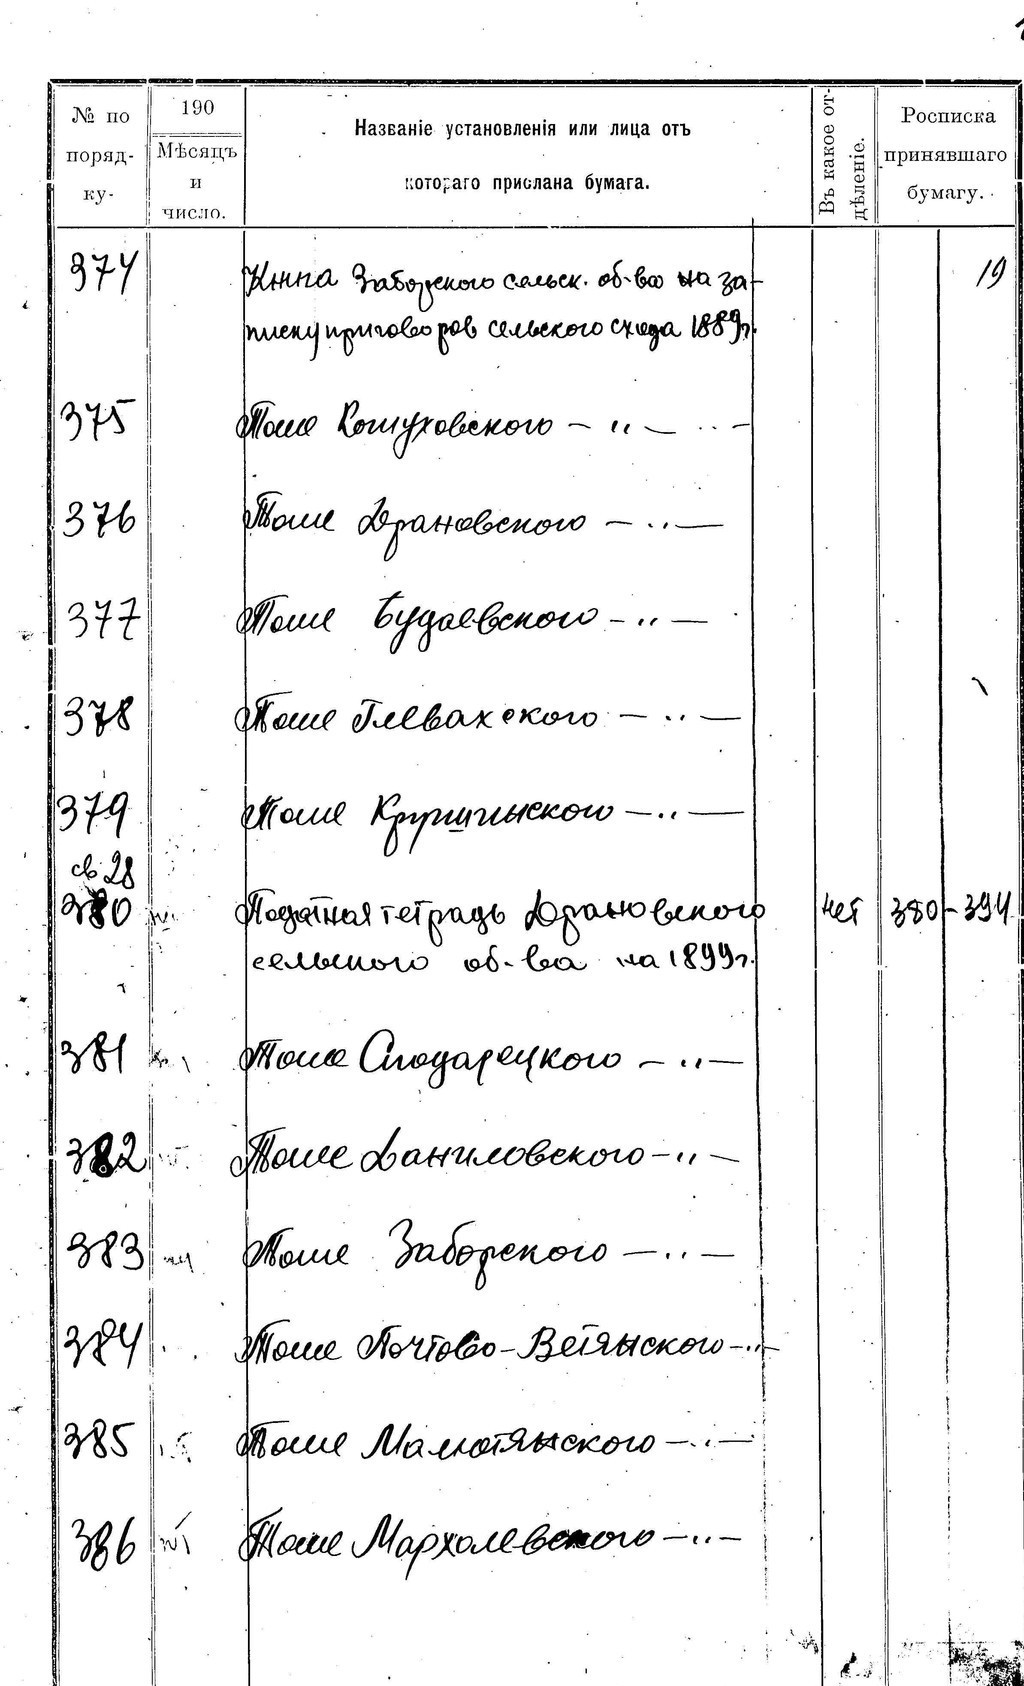 № по порядку-
190
Мѣсяцъ и число.
Названіе установленія или лица отъ
котораго прислана бумага.
Въ какое отдѣленіе.
Росписка принявшаго бумагу.
374 Книга Заборского сельск. об-ва на за- 19
писку приговоров сельского схода 1889г.
375 Тоже Кошуховского — " — " —
376 Тоже Драновского — " —
377 Тоже Будаевского — " —
378 Тоже Глевахского — " —
379 Тоже Крушинского — " —
св 28
380 нет Податная тетрадь Драновского нет 380-394
сельского об-ва на 1899г.
381 Тоже Сподарецкого — " —
382 Тоже Даниловского — " —
383 Тоже Заборского — " —
384 Тоже Почтово-Ветянского — " —
385 Тоже Малютянского — " —
386 Тоже Мархолевского — " —